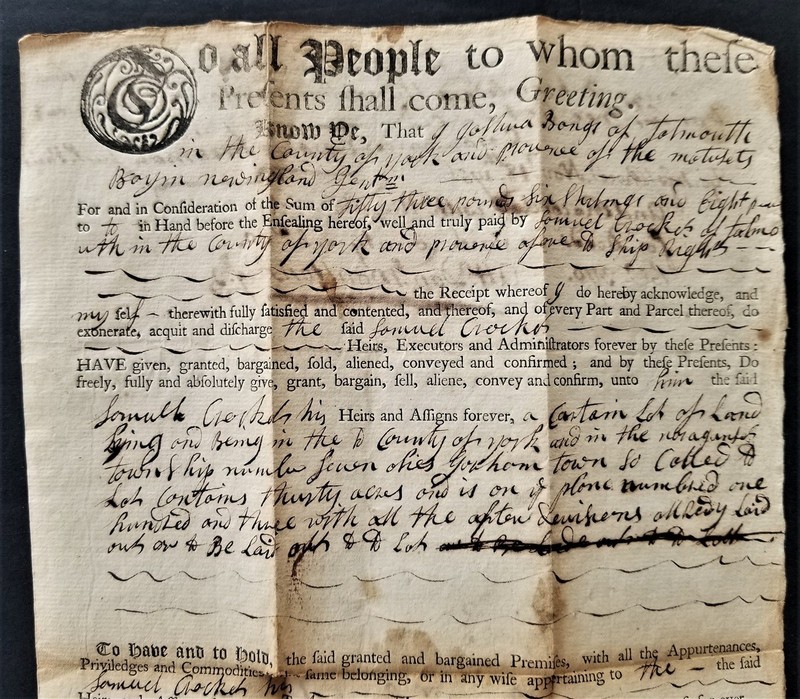 To all People to whom theſe
Preſents ſhall come, Greeting.
Know Ye, That I Joshua Bangs of falmouth
in the County of york and provence of the matusets
Bay in newingland Gentm
For and in Conſideration of the Sum of fifty three pounds Six Shilings and Eight
to in Hand before the Enſealing hereof, well and truly paid by Samuel Crocket of falmo
uth in the County of york and provence Ship Right
the Receipt whereof I do hereby acknowledge, and
my ſelf therewith fully ſatisfied and contented, and thereof, and of every Part and Parcel thereof, do
exonerate, acquit and diſcharge the ſaid Samuel Crocket
Heirs, Executors and Adminiſtrators forever by theſe Preſents:
HAVE given, granted, bargained, ſold, aliened, conveyed and confirmed; and by theſe Preſents, Do
freely, fully and absolutely give, grant, bargain, ſell, aliene, convey and confirm, unto him the ſaid
Samuell Crocket his Heirs and Aſſigns forever, a Cartain Lot of Land
Lying and Being in the sd County of york and in the naraganset
townShip number Seven Gorham town So Called sd
Lot Contains thirty acres and is on ye plane numbred one
hundred and three with all the after devisions allredy laid
out or to Be Laid out to sd Lot
To Have and to Hold, the ſaid granted and bargained Premiſes, with all the Appurtenances,
Priviledges and Commodities ſame belonging, or in any wiſe appertaining to the ſaid
Samuel Crocket his